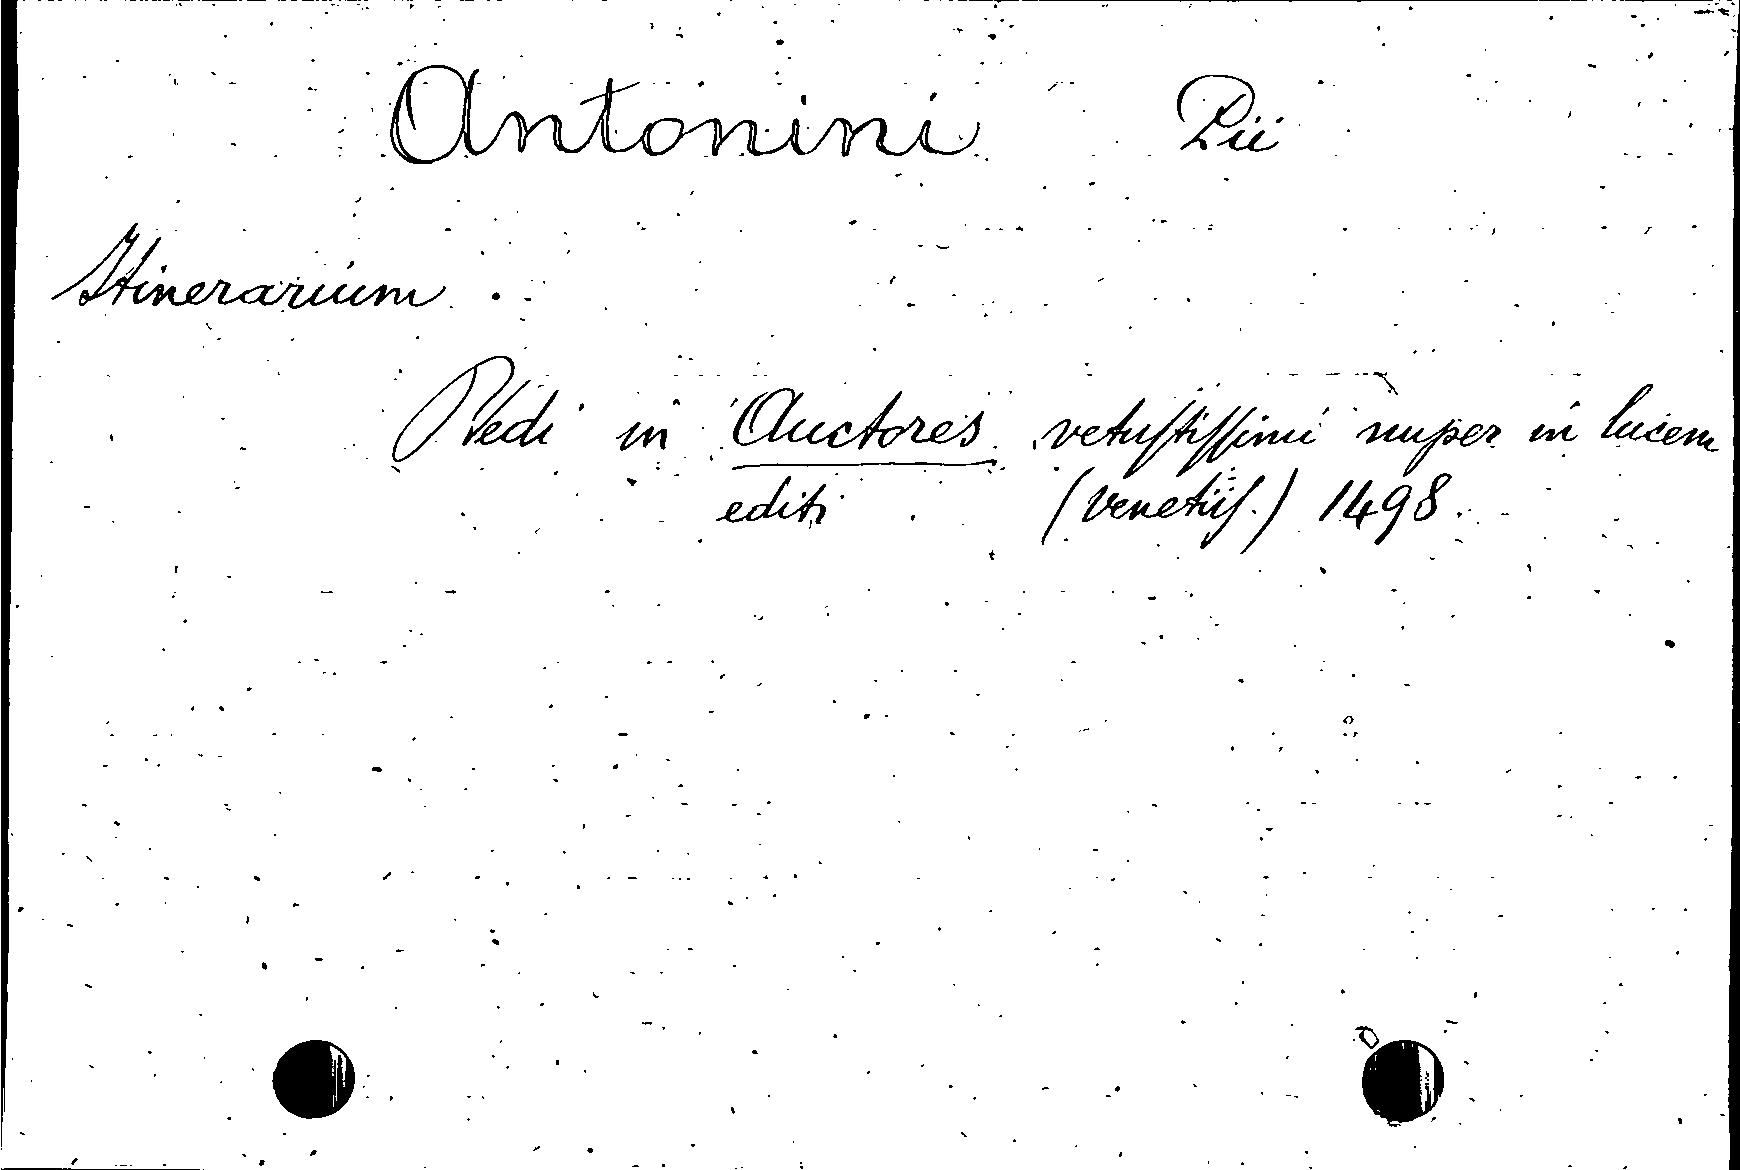 Antonini Pii
Itinerarium.
Vedi in Auctores vetustissimi nuper in lucem
editi (Venetiis.) 1498.